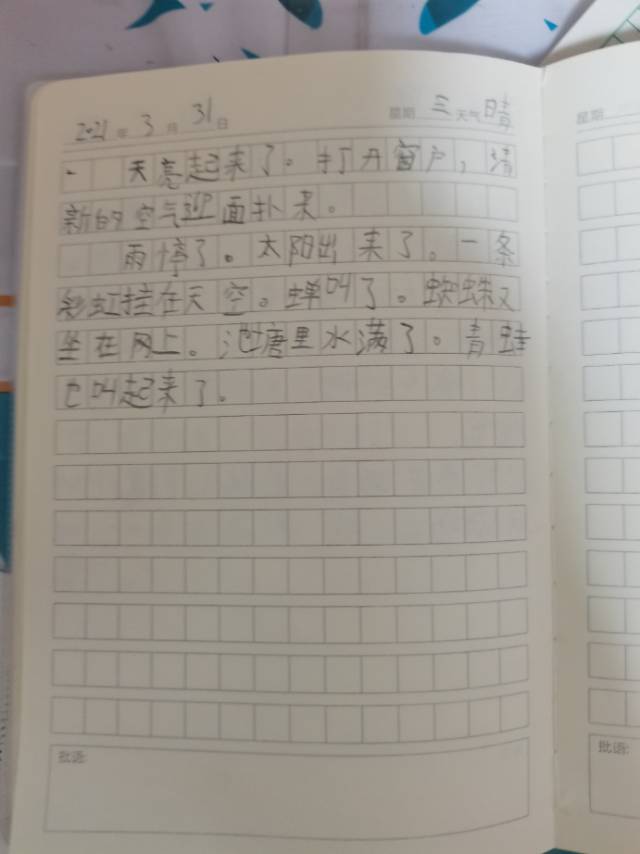 2021年3月31日 星期三天气晴
、 天亮起来了。打开窗户,清
新的空气迎面扑来。
雨停了。太阳出来了。一条
彩虹挂在天空。蝉叫了。蜘蛛又
坐在网上。池唐里水满了。青蛙
也叫起来了。
批语:
星期
批语: